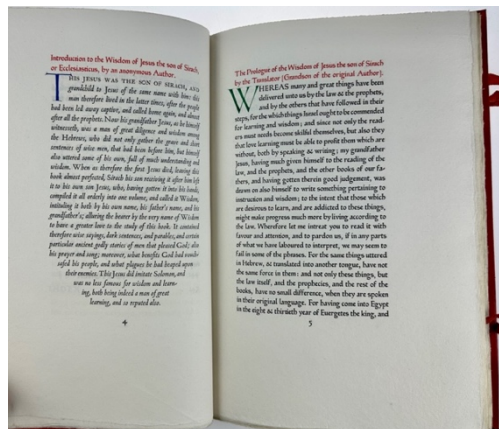 Introduction to the Wisdom of Jesus the son of Sirach,
or Ecclesiasticus, by an anonymous Author.
THIS JESUS WAS THE SON OF SIRACH, AND
grandchild to Jesus of the same name with him: this
man therefore lived in the latter times, after the people
had been led away captive, and called home again, and almost
after all the prophets. Now his grandfather Jesus, as he himself
witnesseth, was a man of great diligence and wisdom among
the Hebrews, who did not only gather the grave and short
sentences of wise men, that had been before him, but himself
also uttered some of his own, full of much understanding and
wisdom. When as therefore the first Jesus died, leaving this
book almost perfected, Sirach his son receiving it after him left
it to his own son Jesus, who, having gotten it into his hands,
compiled it all orderly into one volume, and called it Wisdom,
intituling it both by his own name, his father's name, and his
grandfather's; alluring the hearer by the very name of Wisdom
to have a greater love to the study of this book. It containeth
therefore wise sayings, dark sentences, and parables, and certain
particular ancient godly stories of men that pleased God; also
his prayer and song; moreover, what benefits God had vouch-
safed his people, and what plagues he had heaped upon
their enemies. This Jesus did imitate Solomon, and
was no less famous for wisdom and learn-
ing, both being indeed a man of great
learning, and so reputed also.
4
The Prologue of the Wisdom of Jesus the son of Sirach
by the Translator (Grandson of the original Author).
WHEREAS many and great things have been
delivered unto us by the law & the prophets,
and by the others that have followed in their
steps, for the which things Israel ought to be commended
for learning and wisdom; and since not only the read-
ers must needs become skilful themselves, but also they
that love learning must be able to profit them which are
without, both by speaking & writing; my grandfather
Jesus, having much given himself to the reading of the
law, and the prophets, and the other books of our fa-
thers, and having gotten therein good judgement, was
drawn on also himself to write something pertaining to
instruction and wisdom; to the intent that those which
are desirous to learn, and are addicted to these things,
might make progress much more by living according to
the law. Wherefore let me intreat you to read it with
favour and attention, and to pardon us, if in any parts
of what we have laboured to interpret, we may seem to
fail in some of the phrases. For the same things uttered
in Hebrew, & translated into another tongue, have not
the same force in them: and not only these things, but
the law itself, and the prophecies, and the rest of the
books, have no small difference, when they are spoken
in their original language. For having come into Egypt
in the eight & thirtieth year of Euergetes the king, and
5